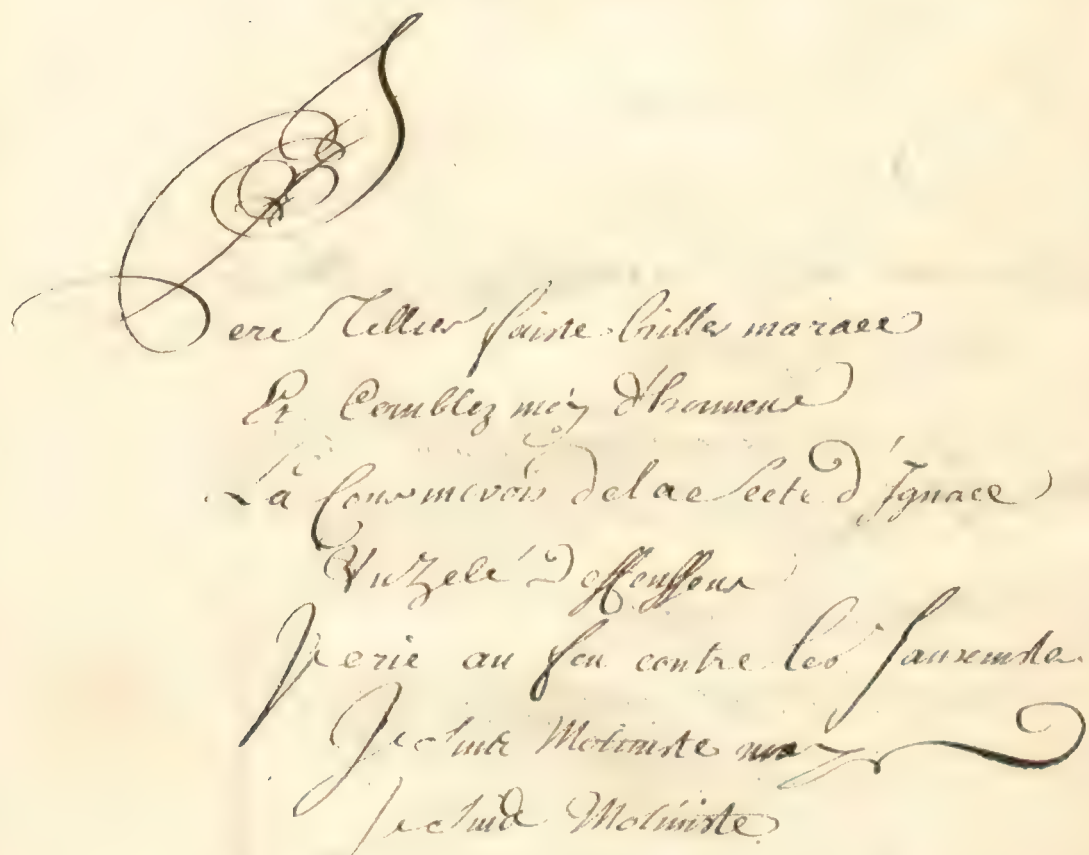 Pere Tellier faitte briller ma race
Et Comblez moy d'honneur
La Cour me voit de la Secte d'Ignace
Un Zelé Deffenseur
Je crie au feu contre les Jansenistes
Je suis Moliniste moy
Je suis Moliniste